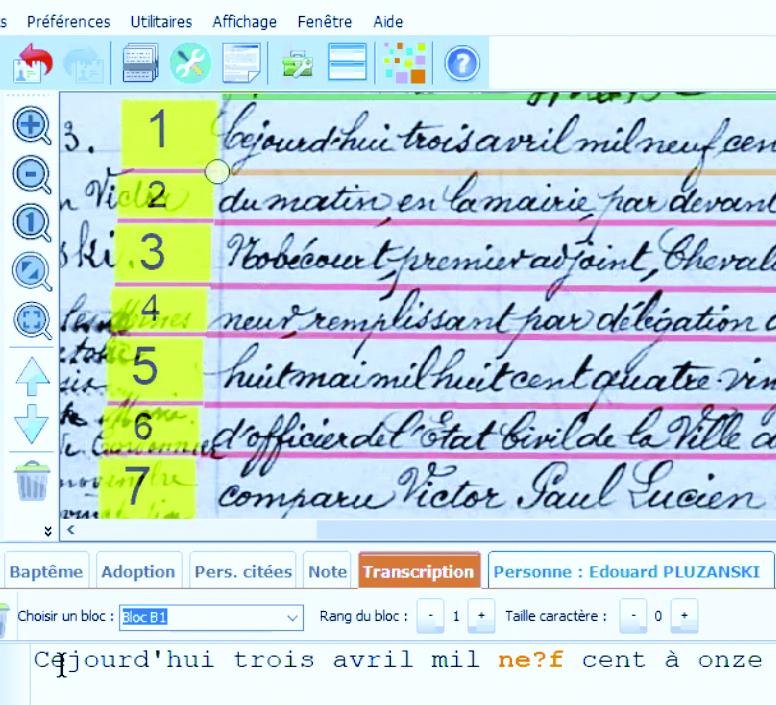 s Préférences Utilitaires Affichage Fenêtre Aide
3. 1 Cejourd'hui trois avril mil neuf cen
n Victor 2 du matin, en la mairie, par devant
ski. 3 Nobécourt, premier adjoint, Chevali
4 neur, remplissant par délégation
5 huit mai mil huit cent quatre-vin
6 d'officier de l'Etat Civil de la Ville
7 comparu Victor Paul Lucien
Baptême Adoption Pers. citées Note Transcription Personne : Edouard PLUZANSKI
Choisir un bloc : Bloc B1 Rang du bloc : - 1 + Taille caractère : - 0 +
Cejourd'hui trois avril mil ne?f cent à onze